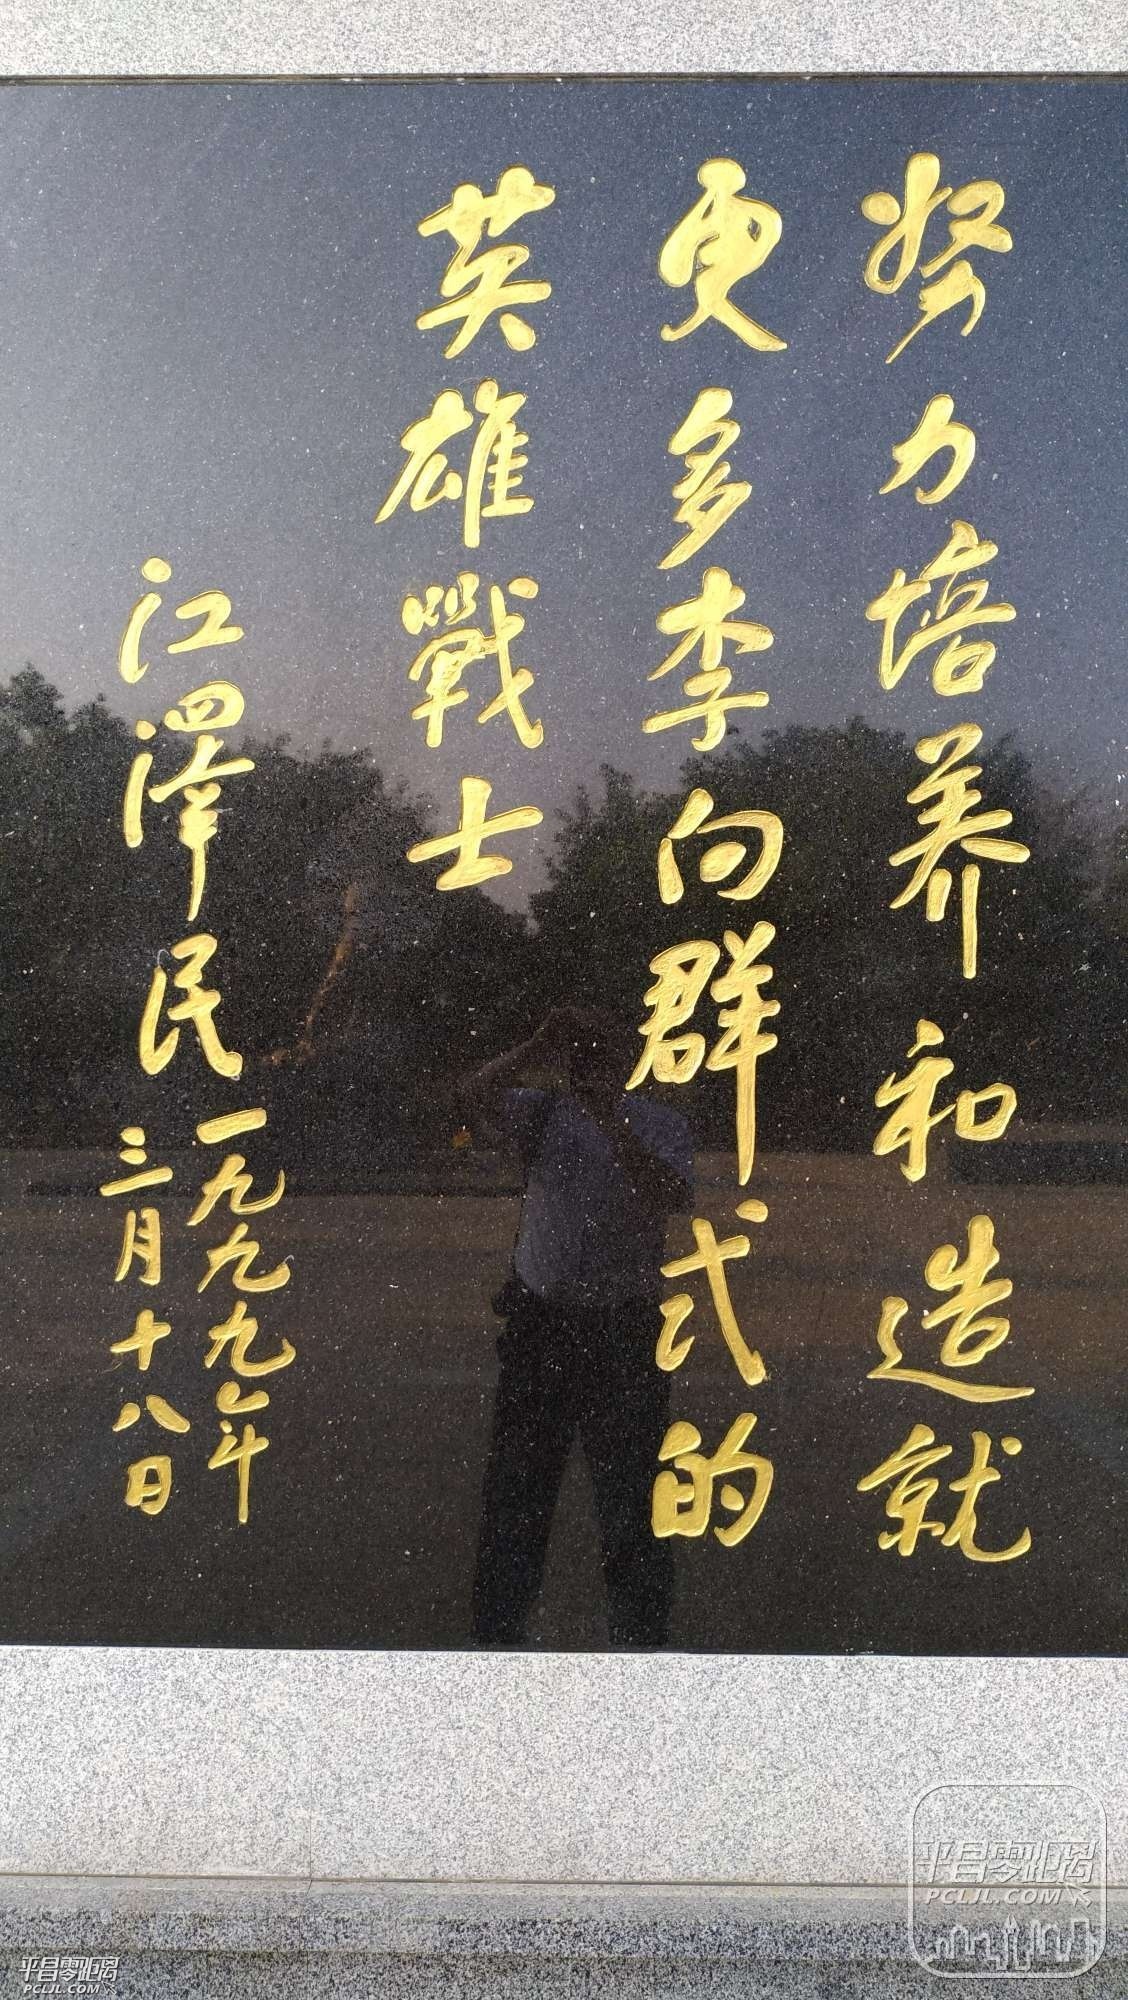 努力培养和造就
更多李向群式的
英雄戰士
江泽民
一九九九年
三月十八日
平昌零距离
PCLJL.COM
平昌零距离
PCLJL.COM